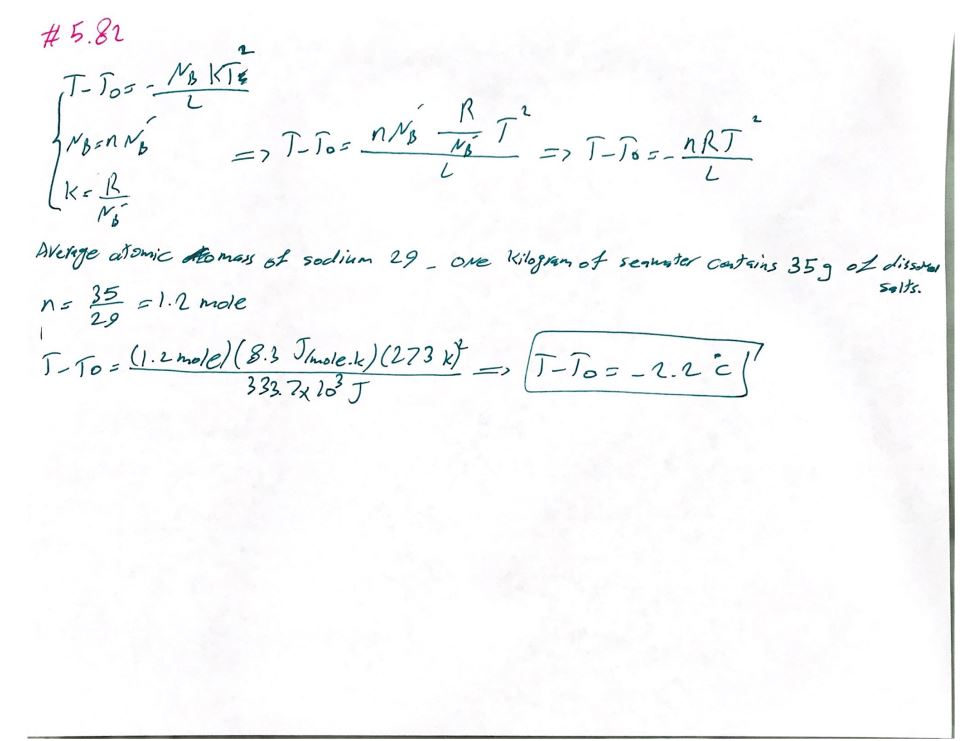 # 5.82
T - T₀ = - N_B K T₀² / L
N_B = n N_B′
K = R / N_B′
=> T - T₀ = n N_B′ (R / N_B′) T² / L => T - T₀ = - nRT² / L
Average atomic mass of sodium 29 - one kilogram of seawater contains 35 g of
salts.
n = 35 / 29 = 1.2 mole
T - T₀ = (1.2 mole) (8.3 J/mole.k) (273 k)² / 333.7 x 10³ J => T - T₀ = - 2.2 °c